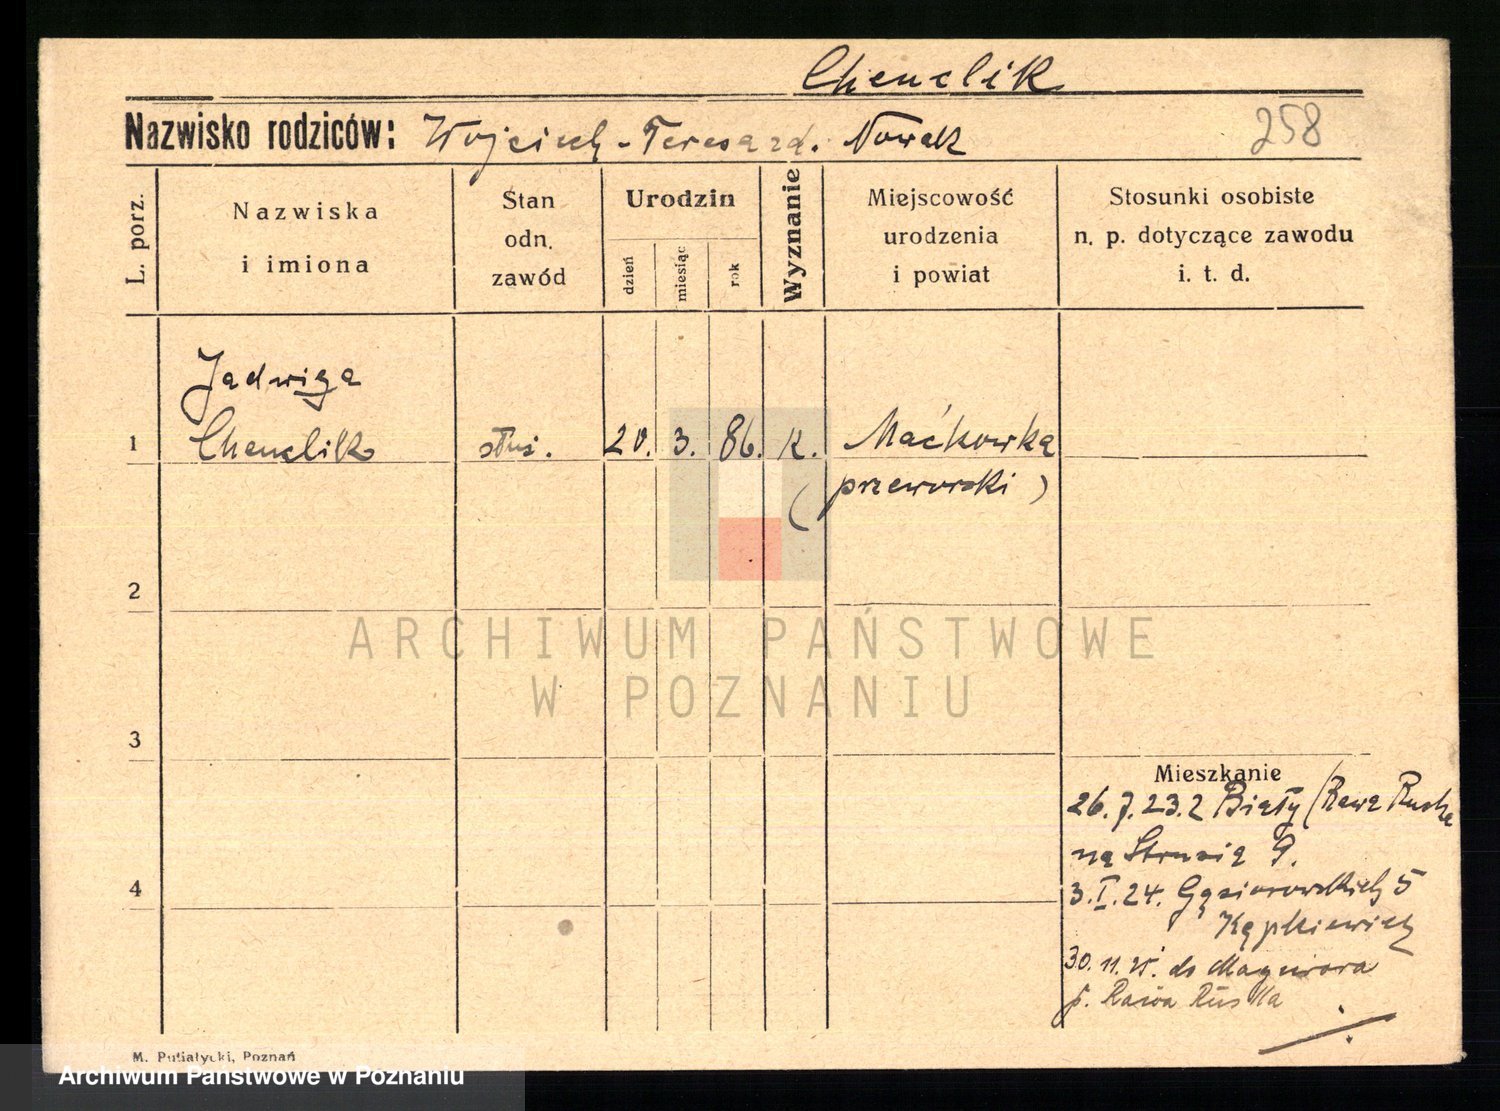 Chenclik
Nazwisko rodziców: Wojciech - Teresa zd. Nowak 258
L. porz.
Nazwiska
i imiona
Stan
odn.
zawód
Urodzin
dzień
miesiąc
rok
Wyznanie
Miejscowość
urodzenia
i powiat
Stosunki osobiste
n. p. dotyczące zawodu
i. t. d.
Jadwiga
1 Chenclik służ. 20. 3. 86. K. Maćkowka
(przeworski)
2
ARCHIWUM PAŃSTWOWE
W POZNANIU
3
Mieszkanie
26. 7. 23. z Biały (Rawa Ruska
na Strusia 9.
4
3. I. 24. Gąsiorowskich 5
30. 11. 25. do Magierowa
p. Rawa Ruska
M. Putiatycki, Poznań
Archiwum Państwowe w Poznaniu